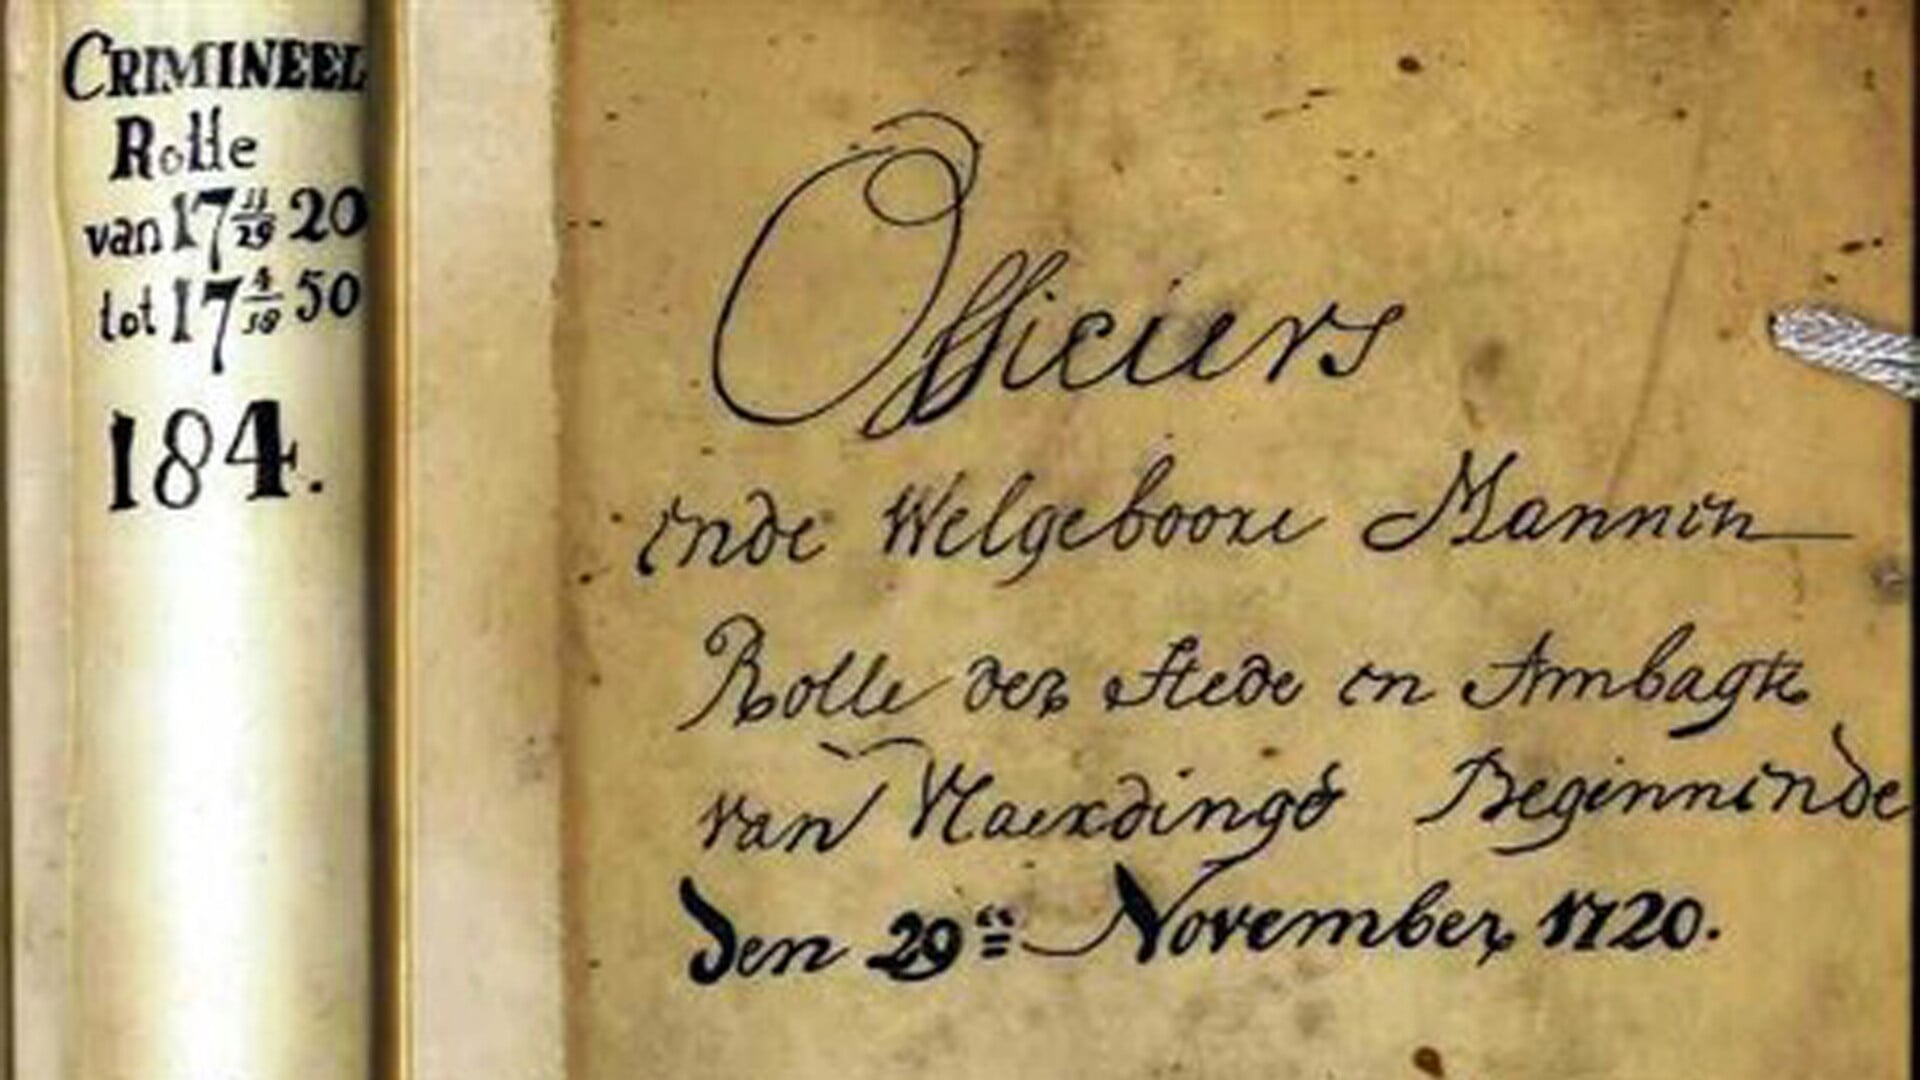 CRIMINEEL
Rolle
van 17 11/29 20
tot 17 4/10 50
184.
Officiers
ende Welgeboore Mannen
Rolle der Stede en Ambagte
van Vlaerdinge Beginnende
den 29en November 1720.